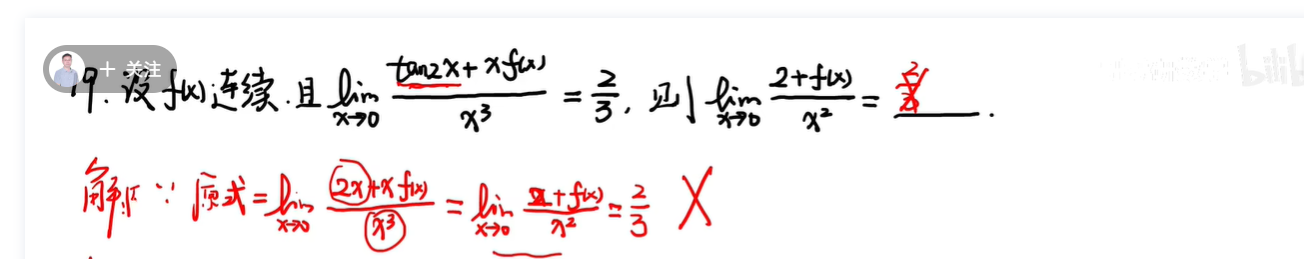 + 关注
19. 设f(x)连续. 且 lim x→0 (tan2x + xf(x))/x³ = 2/3, 则 lim x→0 (2+f(x))/x² = 2/3 .
解: ∵ 原式 = lim x→0 (2x+xf(x))/x³ = lim x→0 (2+f(x))/x² = 2/3 X
bili